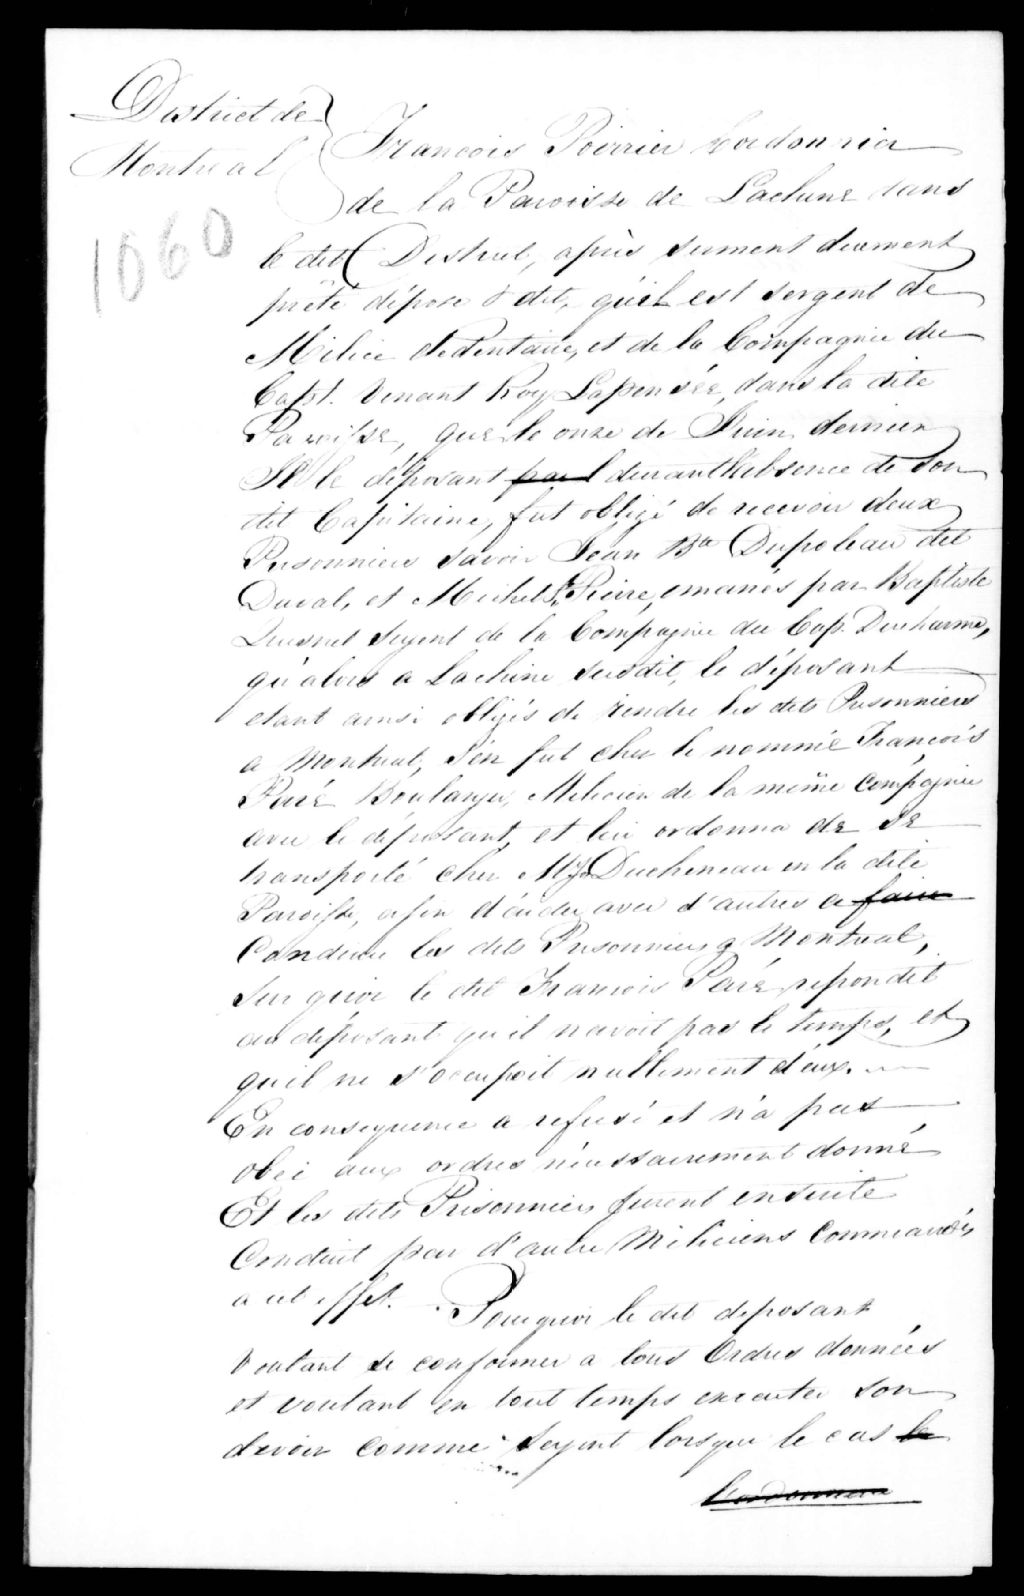 District de
Montreal
1060
Francois Poirrier Cordonnier
de la Paroisse de Lachine dans
le dit District, après serment dument
prêté dépose & dit, qúil est sergent de
Milice Sedentaire, et de la Compagnie du
Capt. Venant Roy Lapensée, dans la dite
Paroisse, que le onze de Juin dernier
Il le déposant par l durant l'absence de son
dit Capitaine, fut obligé de recevoir deux
Prisonniers savoir Jean Bte Dupoleau dit
Duval, et Michel St. Pierre, emanés par Baptiste
Quesnel Sergent de la Compagnie du Cap. Ducharme,
qu'alors a Lachine susdit, le déposant
etant ainsi obligés de rendre les dits Prisonniers
a Montreal, s'en fut chez le nommé François
Paré Boulanger, Milicien de la même Compagnie
avec le déposant, et lui ordonna de se
transporté chez Mr Ducheneau en la dite
Paroisse, afin d'aider avec d'autres a faire
Conduire les dits Prisonniers a Montreal,
Sur quoi le dit Francois Paré repondit
au déposant qu'il navoit pas le temps, et
quil ne s'occupoit nullement d'eux.
En consequence a refusé et n'a pas
obei aux ordres nécessairement donné
Et les dits Prisonniers furent ensuite
Conduit par d'autre Miliciens Commandés
a cet effet. Pourquoi le dit deposant
Voulant se conformer a tous Ordres données
et voulant en tout temps executer son
devoir comme Sergent lorsque le cas le